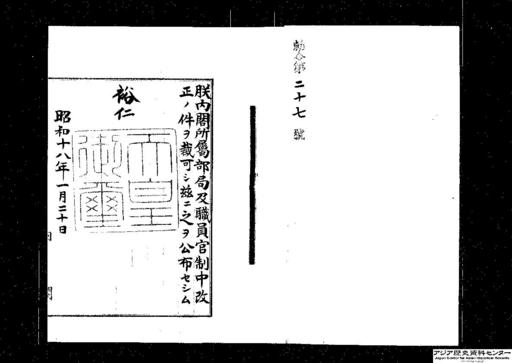 勅令第二十七號
朕内閣所屬部局及職員官制中改
正ノ件ヲ裁可シ玆ニ之ヲ公布セシム
裕仁
天皇御璽
昭和十八年一月二十日
アジア歴史資料センター
Japan Center for Asian Historical Records